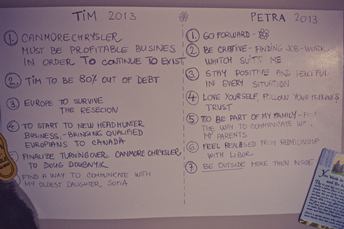 TIM 2013
1 CANMORE CHRYSLER
MUST BE PROFITABLE BUSINES
IN ORDER TO CONTINUE TO EXIST
2 TIM TO BE 80% OUT OF DEBT
3 EUROPE TO SURVIVE
THE RESECION
4 TO START TO NEW HEADHUNTER
BUSINESS, - BRINGING QUALIFIED
EUROPIANS TO CANADA
FINALIZE TURNING OVER CANMORE CHRYSLER
TO DOUG
FIND A WAY TO COMMUNICATE WITH
MY OLDEST DAUGHTER SOFIA
PETRA 2013
1 GO FORWARD -
2 BE CRATIVE - FINDING JOB - WORK
WHITCH SUIT ME
3 STAY POSITIVE AND
IN EVERY SITUATION
4 LOVE YOURSELF, FOLLOW YOUR
TRUST
5 TO BE PART OF MY FAMILY -
THE WAY TO COMMUNICATE
MY PARENTS
6 FEEL FROM
WITH LIBOR
7 BE OUTSIDE MORE THEN INSIDE